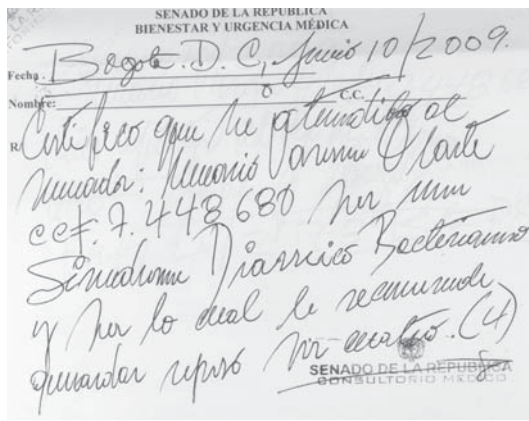 SENADO DE LA REPÚBLICA
BIENESTAR Y URGENCIA MÉDICA
Fecha: Bogotá. D. C, Junio 10/2009.
Nombre: C.C.
R/ Certifico que he atendido al
senador: Nemesio Olarte
cc#. 7.448.680 por un
Síndrome Diarreico Bacteriano
y por lo cual le recomiendo
guardar reposo por cuatro. (4)
SENADO DE LA REPUBLICA
CONSULTORIO MEDICO